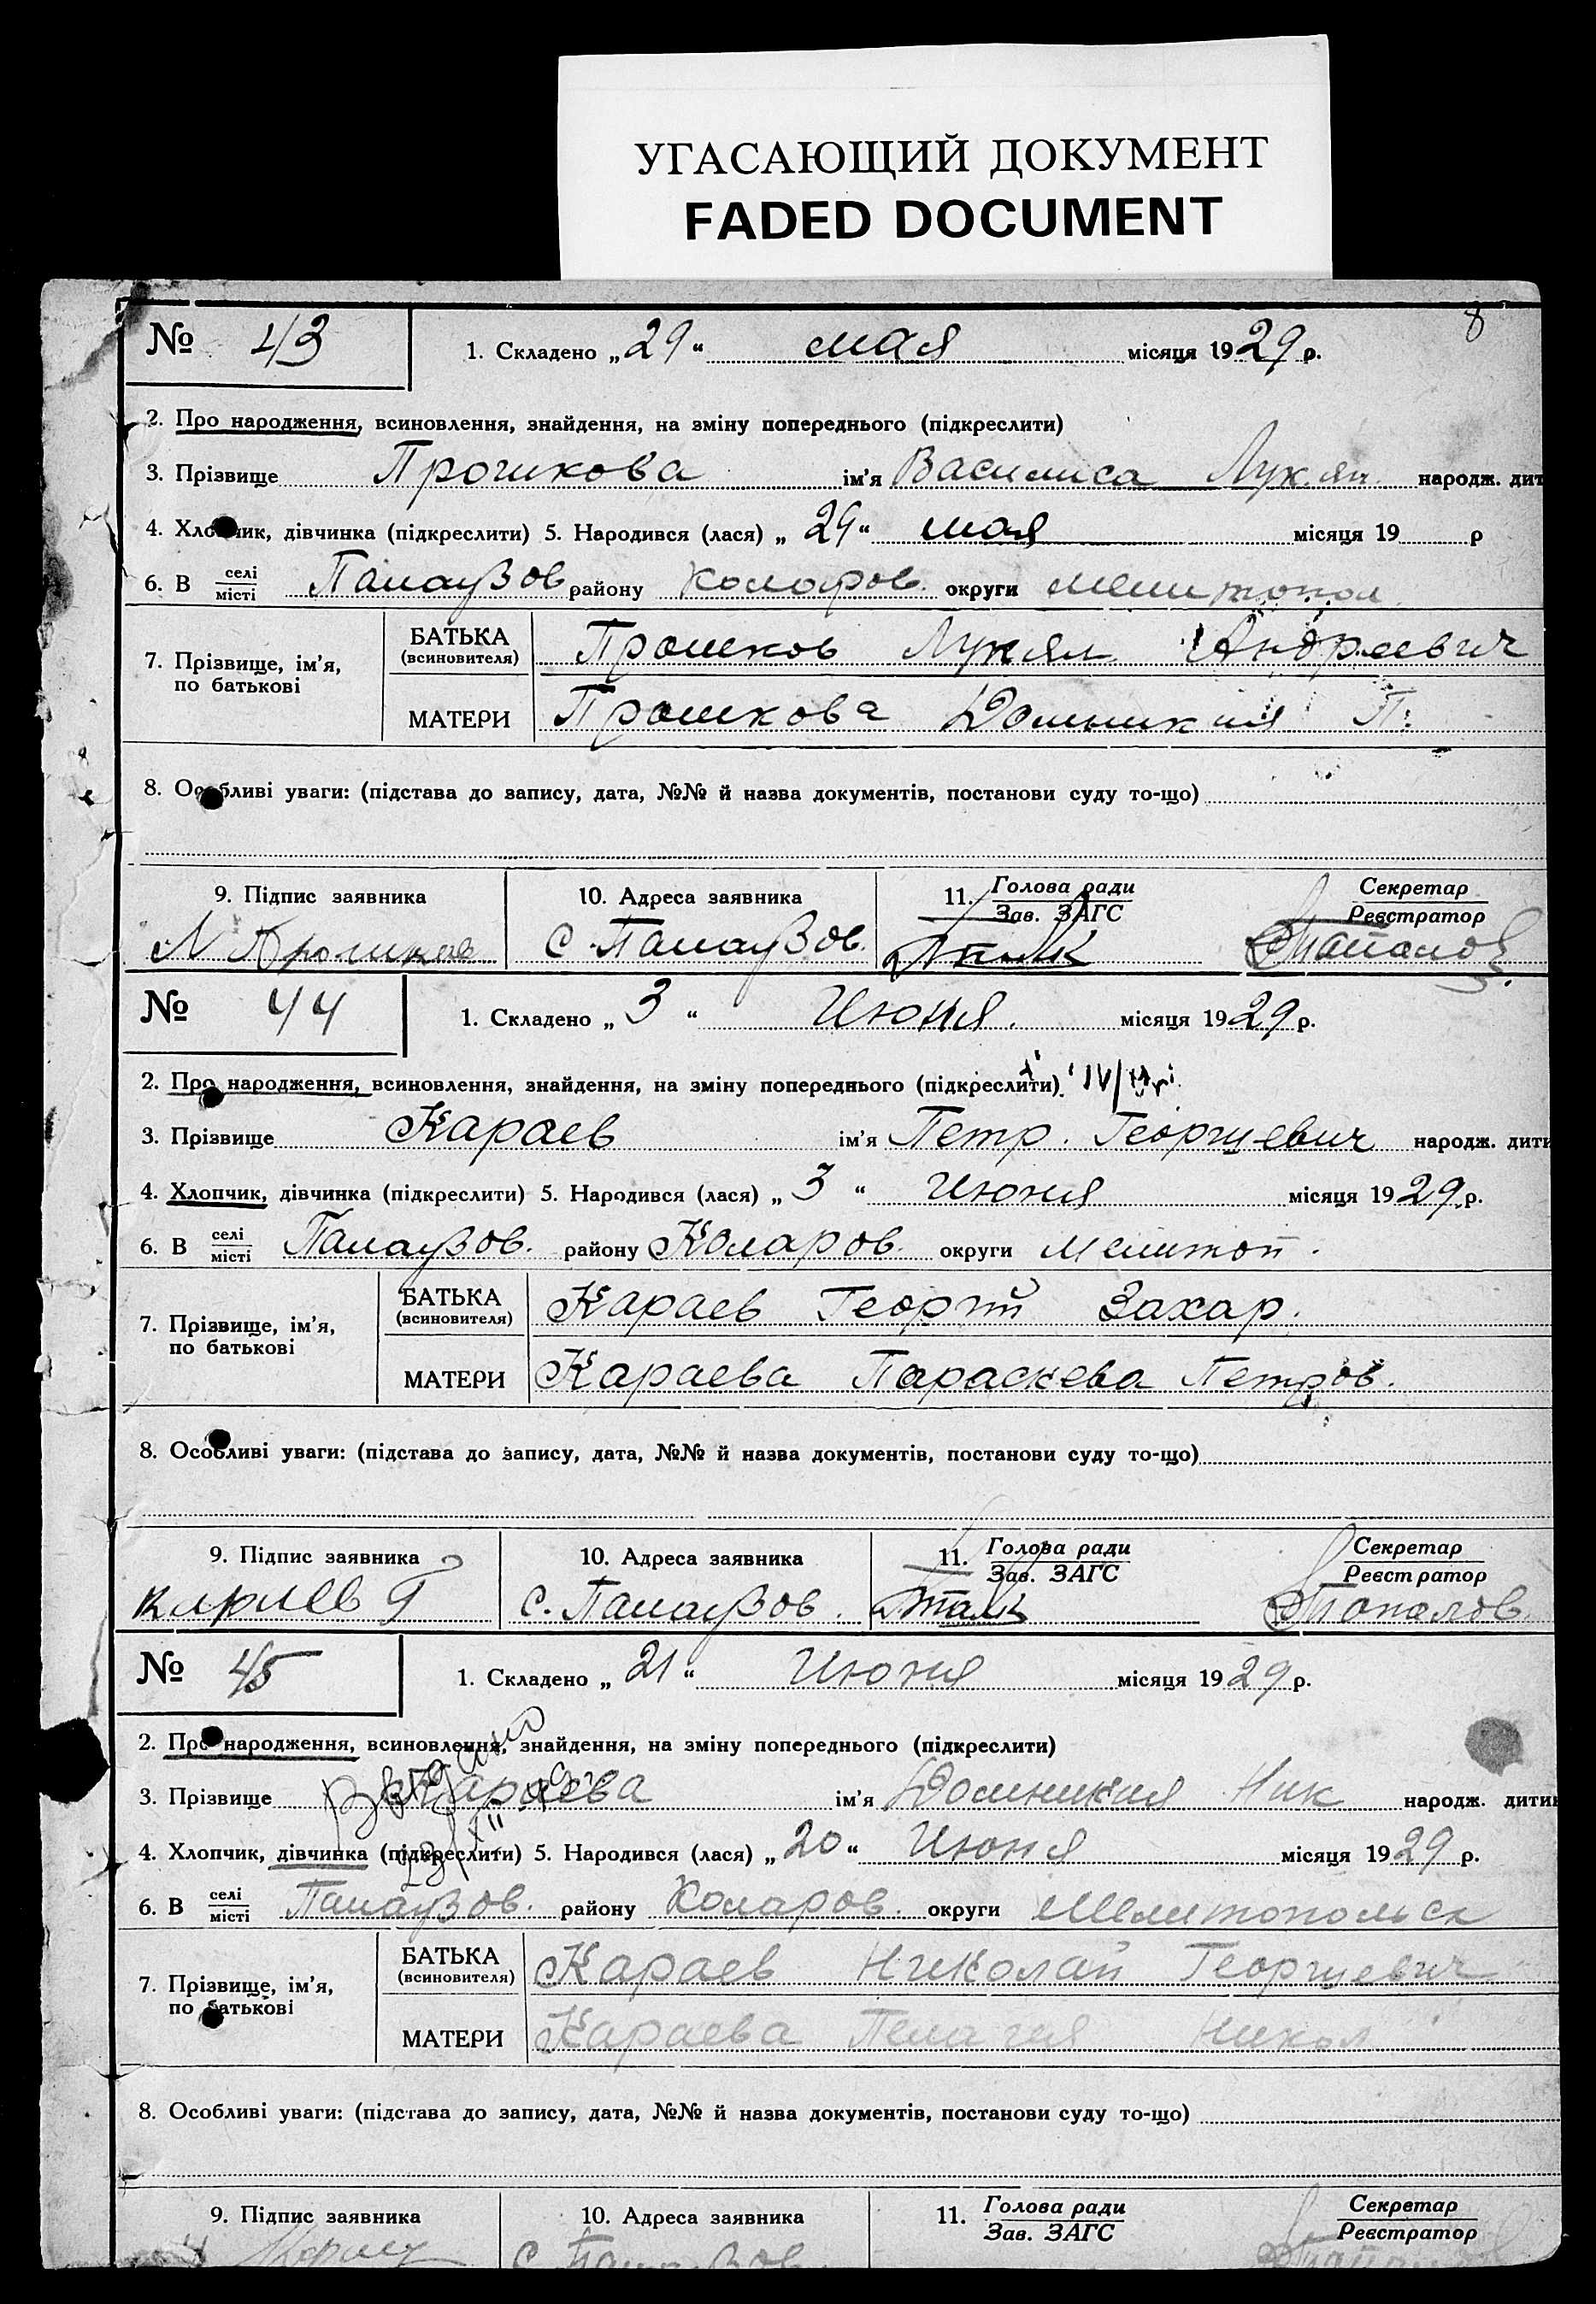 УГАСАЮЩИЙ ДОКУМЕНТ
FADED DOCUMENT
8
№ 43 1. Складено „29“ мая місяця 1929 р.
2. Про народження, всиновлення, знайдення, на зміну попереднього (підкреслити)
3. Прізвище Прошкова ім'я Василиса Лук.ян. народж. дит
4. Хлопчик, дівчинка (підкреслити) 5. Народився (лася) „29“ мая місяця 19 р
6. В селі/місті Палаузов району Коларов. округи Мелитопол.
7. Прізвище, ім'я, по батькові БАТЬКА (всиновителя) Прошков Лукян Андреевич
МАТЕРИ Прошкова Домникия П.
8. Особливі уваги: (підстава до запису, дата, №№ й назва документів, постанови суду то-що)
9. Підпис заявника 10. Адреса заявника 11. Голова ради/Зав. ЗАГС Секретар/Реєстратор
Л Прошков С. Палаузов. Топалов
№ 44 1. Складено „3“ Июня. місяця 1929 р.
2. Про народження, всиновлення, знайдення, на зміну попереднього (підкреслити).
3. Прізвище Караев ім'я Петр. Георгиевич народж. дити
4. Хлопчик, дівчинка (підкреслити) 5. Народився (лася) „3“ Июня місяця 1929 р.
6. В селі/місті Палаузов. району Коларов. округи Мелитоп.
7. Прізвище, ім'я, по батькові БАТЬКА (всиновителя) Караев Георгий Захар.
МАТЕРИ Караева Параскева Петров.
8. Особливі уваги: (підстава до запису, дата, №№ й назва документів, постанови суду то-що)
9. Підпис заявника 10. Адреса заявника 11. Голова ради/Зав. ЗАГС Секретар/Реєстратор
Караев Г С. Палаузов. Топалов
№ 45 1. Складено „21“ Июня місяця 1929 р.
2. Про народження, всиновлення, знайдення, на зміну попереднього (підкреслити)
3. Прізвище Караева ім'я Домникия Ник народж. дитин
4. Хлопчик, дівчинка (підкреслити) 5. Народився (лася) „20“ Июня місяця 1929 р.
6. В селі/місті Палаузов. району Коларов. округи Мелитопольск
7. Прізвище, ім'я, по батькові БАТЬКА (всиновителя) Караев Николай Георгиевич
МАТЕРИ Караева Пелагия Никол
8. Особливі уваги: (підстава до запису, дата, №№ й назва документів, постанови суду то-що)
9. Підпис заявника 10. Адреса заявника 11. Голова ради/Зав. ЗАГС Секретар/Реєстратор
С. Палаузов. Топалов